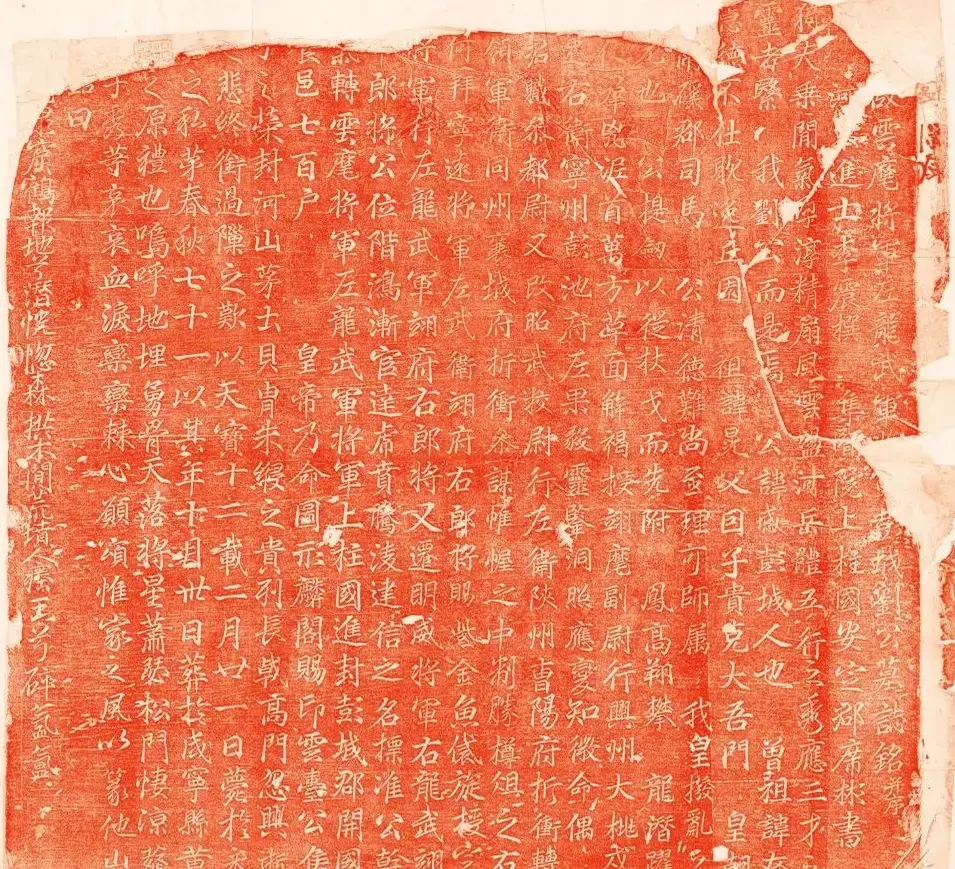 故雲麾將軍左龍武軍 劉公墓誌銘并序
進士李震撰 院上柱國安定郡席彬書
大乘閒氣 淳精扇風雲 岳體五行之秀應三才
靈者 我劉公而是焉 公諱感彭城人也 曾祖諱
不仕耽逸丘園 祖諱晃父曰子貴克大吾門 皇
郡司馬 公清德難尚至理可師屬 我皇撥亂
也公提劔以從扶戈而先附 鳳高翔攀 龍潛躍
兇泥首萬方草面解褐授翊麾副尉行興州大桃戍
右衛寧州彭池府左果毅靈鑒洞照應變知微命偶
職叅都尉又改昭武挍尉行左衛陝州曹陽府折衝轉
領軍衛同州襄城府折衝叅謀帷幄之中制勝樽俎之右
何拜寧遠將軍左武衛翊府右郎將賜紫金魚袋旋授定
將軍行左龍武軍翊府右郎將又遷明威將軍右龍武翊
郎將公位階鴻漸官達虎賁騰淩建信之名標准公幹
轉雲麾將軍左龍武軍將軍上柱國進封彭城郡開國
邑七百户 皇帝乃命圖於麟閣賜印雲臺公
之榮封河山茅土貝胄朱綬之貴列長戟高門忽興
悲終銜過隟之歎以天寶十二載二月廿一日薨於
之私苐春秋七十一以其年十月卅日葬於咸寧縣黄
之原禮也嗚呼地埋勇骨天落將星蕭瑟松門悽涼
子秀等哀哀血淚欒欒棘心願頌惟家之風以篆他山
曰
鶴報地兮潛恍惚森拱木閒荒 人 兮碎氳氳